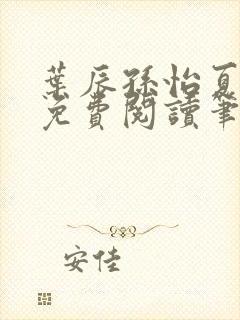 葉辰孫怡夏
免費閱讀筆
安佳